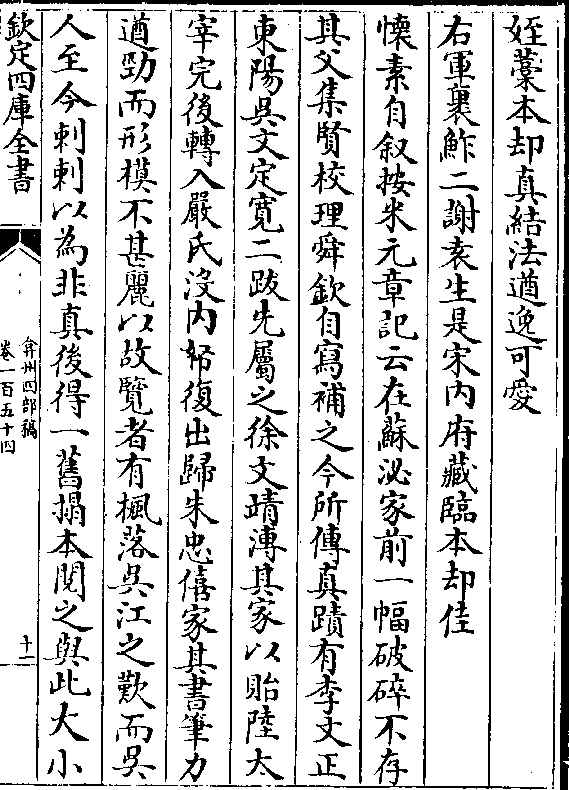 姪藁本却真結法遒逸可愛
右軍裹鮓二謝袁生是宋内府藏臨本却佳
懐素自叙按米元章記云在蘇泌家前一幅破碎不存
其父集賢校理舜欽自寫補之今所傳真蹟有李文正
東陽吳文定寛二跋先屬之徐文靖溥其家以貽陸太
宰完後轉入嚴氏没内帑復出歸朱忠僖家其書筆力
遒勁而形模不甚麗以故覽者有楓落吳江之歎而吳
人至今刺刺以為非真後得一舊搨本閱之與此大小
欽定四庫全書
弇州四部稿
卷一百五十四
十一